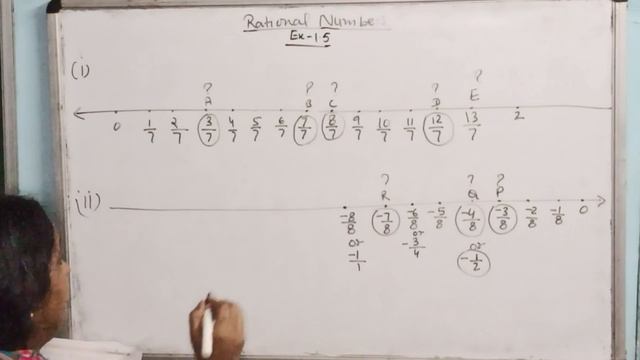 Rational Number
Ex-1.5
(i)
? ? ? ? ?
A B C D E
0 1/7 2/7 3/7 4/7 5/7 6/7 7/7 8/7 9/7 10/7 11/7 12/7 13/7 2
(ii)
? ? ?
R Q P
-8/8 -7/8 -6/8 -5/8 -4/8 -3/8 -2/8 -1/8 0
or or or
-1/1 -3/4 -1/2